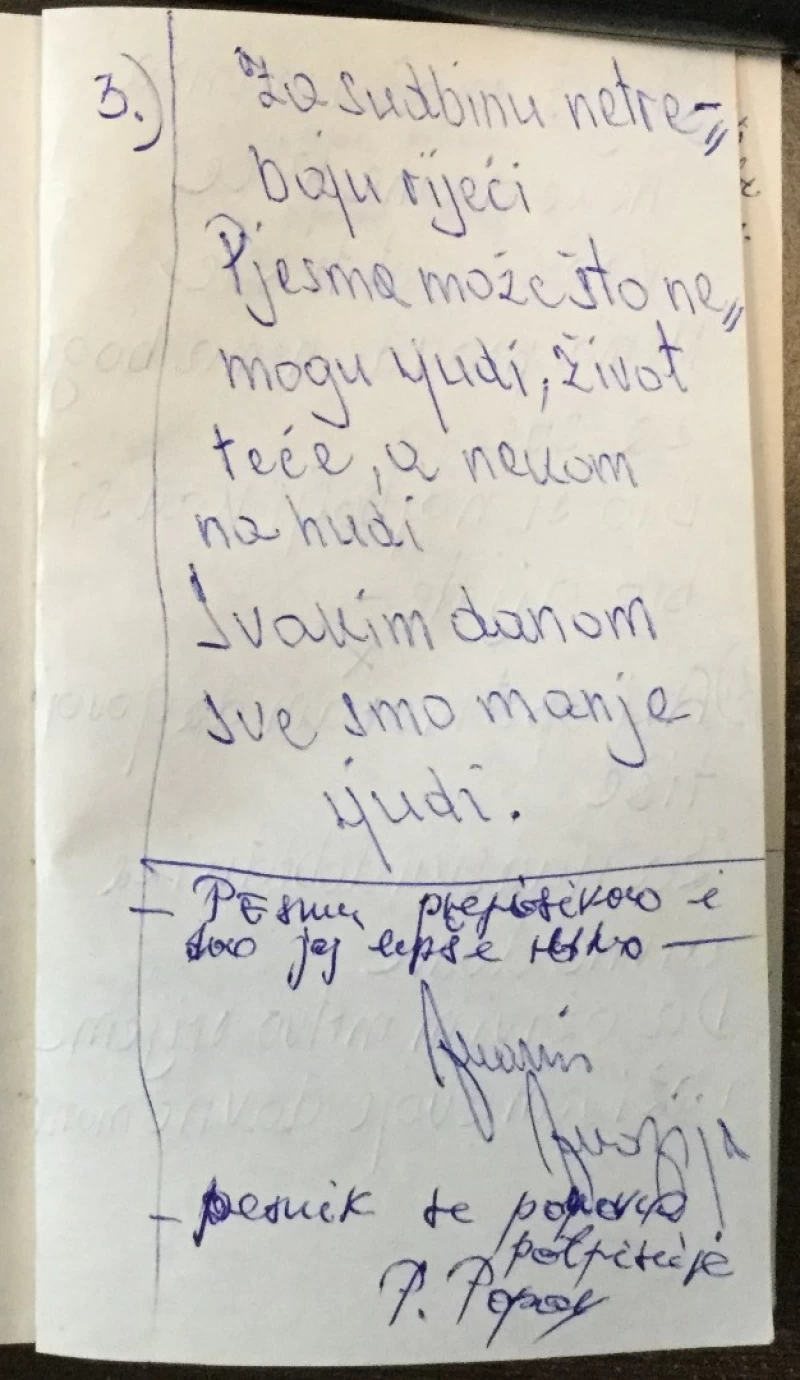 3.) Za sudbinu netre-„
baju riječi
Pjesma može što ne„
mogu ljudi, život
teče, a nekom
na hudi
Svakim danom
sve smo manje
ljudi.
- Pesmu prepisikao i
dao joj lepše
- pesnik se ponovo
potpisuje
P. Popov